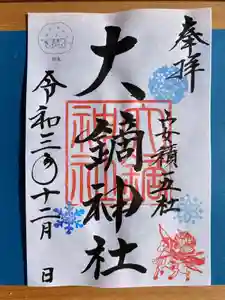 奉拝
安積五社
大鏑神社
令和三年十二月 日
大鏑神社